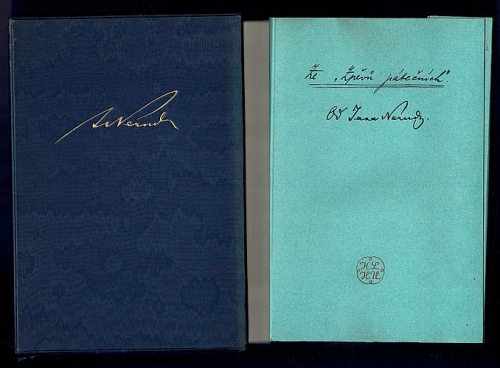 JNeruda
Ze „Zpěvů pátečních"
Od Jana Nerudy.
K L
H U